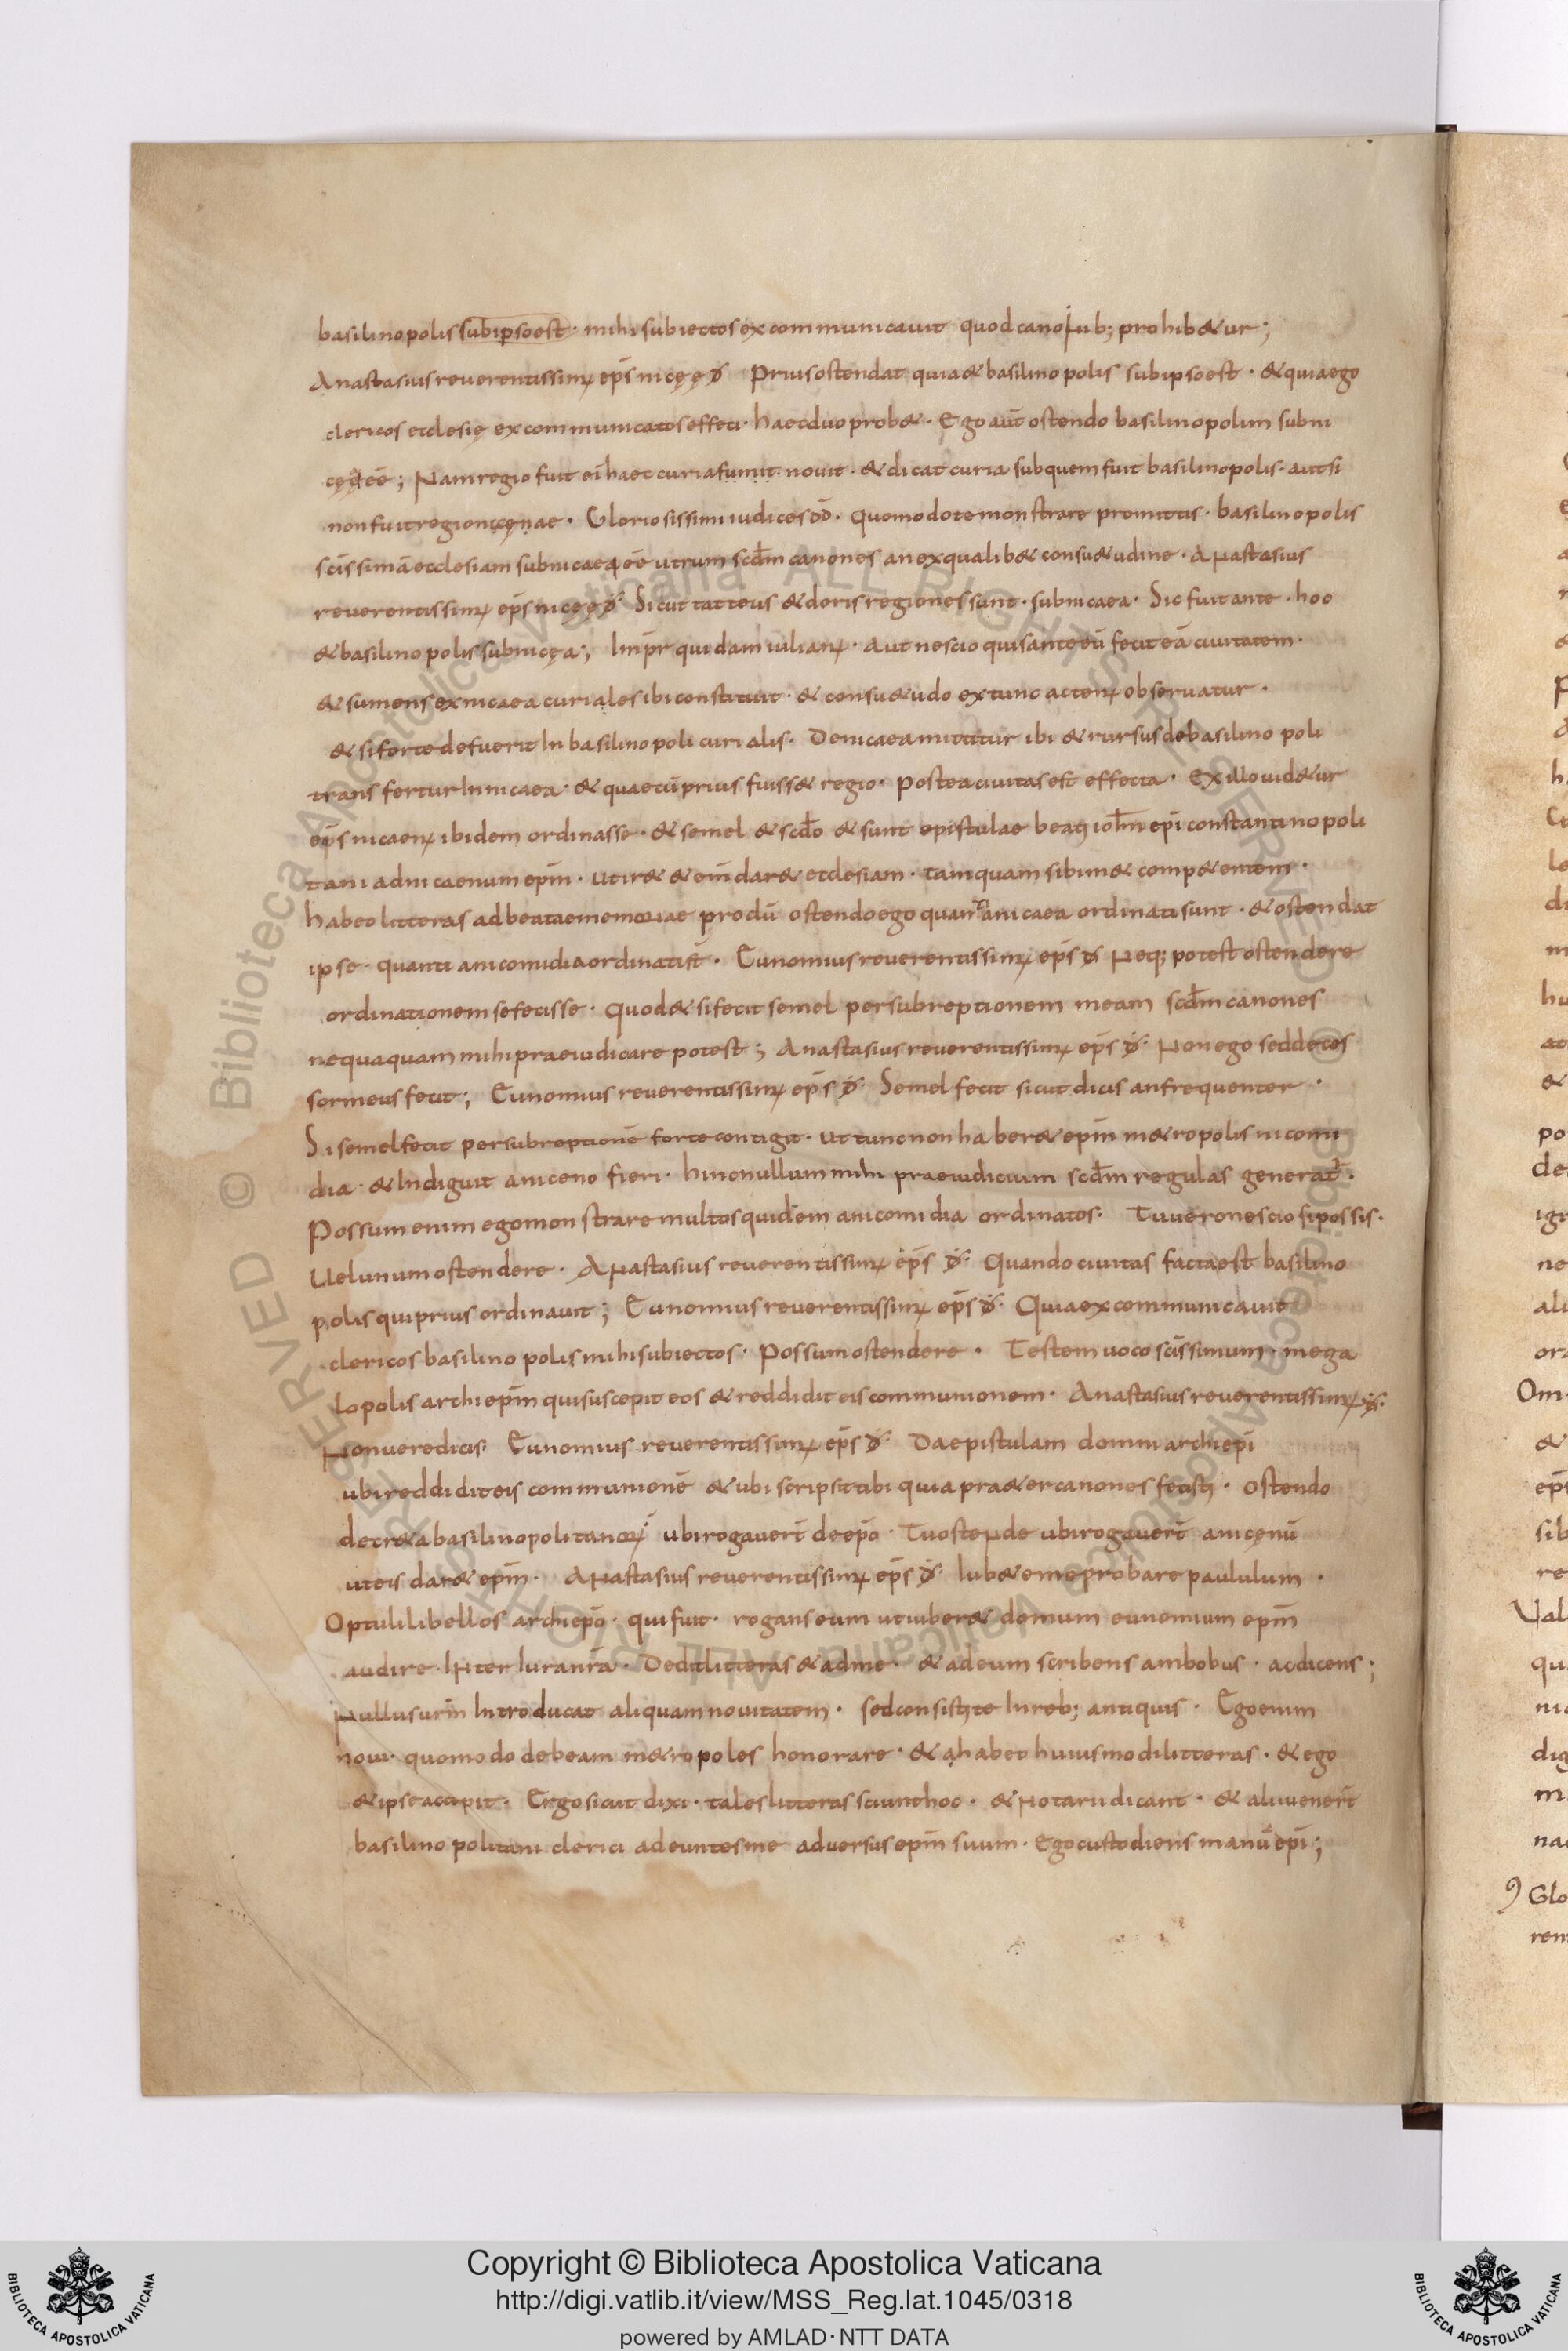 basilinopolis subipso est · mihi subiectos excommunicauit quod canonib; prohib&ur;
Anastasius reuerentissimꝰ ep̄s nicęę đ Prius ostendat quia & basilinopolis sub ipso est · & quia ego
clericos ecclesię excommunicatos effeci · haec duo prob& · Ego aūt ostendo basilinopolim sub ni
cęę ēē; Nam regio fuit ei haec curia fuit nouit · & dicat curia sub quem fuit basilinopolis · aut si
non fuit regio nicęnae · Gloriosissimi iudices dd̄ · Quomodo temonstrare promittis · basilinopolis
sc̄issimā ecclesiam sub nicaea ēē utrum scd̄m canones an ex qualib& consu&udine · Anastasius
reuerentissimꝰ ep̄s nicęę đ Sicut tatteus & doris regiones sunt · sub nicaea · Sic fuit ante · hoc
& basilinopolis sub nicęa; Imp̄r quidam iulianꝰ · Aut nescio quis ante eū fecit eā ciuitatem ·
& sumens ex nicaea curiales ibi constituit · & consu&udo ex tunc actenꝰ obseruatur ·
& si forte defuerit In basilinopoli curialis · De nicaea mittitur ibi & rursus de basilino poli
transfertur In nicaea · & quae cū prius fuiss& regio · postea ciuitas est effecta · Ex illo uid&ur
ep̄s nicaenꝰ ibidem ordinasse · & semel & scd̄o & sunt epistulae beati ioh̄m ep̄i constantinopoli
tani ad nicaenum ep̄m · ut ir& & em̄dar& ecclesiam · tamquam sibim& comp&entem ·
habeo litteras ad beatae memoriae prodū ostendo ego quanti a nicaea ordinati sunt · & ostendat
ipse · quanti a nicomidia ordinati st̄ · Eunomius reuerentissimꝰ ep̄s đ Neq; potest ostendere
ordinationem se fecisse · Quod & si fecit semel per subreptionem meam scd̄m canones
nequaquam mihi praeiudicare potest; Anastasius reuerentissimꝰ ep̄s đ Non ego sed deces
sor meus fecit; Eunomius reuerentissimꝰ ep̄s đ Semel fecit sicut dicis an frequenter ·
Si semel fecit per subreptionē forte contigit · ut tunc non haber& ep̄m m&ropolis nicomi
dia · & Indiguit a niceno fieri · hinc nullum mihi praeiudicium scd̄m regulas generat̄ ·
Possum enim ego monstrare multos quidem a nicomidia ordinatos · Tu uero nescio si possis ·
Uel unum ostendere · Anastasius reuerentissimꝰ ep̄s đ Quando ciuitas facta est basilino
polis qui prius ordinauit; Eunomius reuerentissimꝰ ep̄s đ Quia excommunicauit
clericos basilinopolis mihi subiectos · Possum ostendere · Testem uoco sc̄issimum · mega
lopolis archiep̄m qui suscepit eos & reddidit eis communionem · Anastasius reuerentissimꝰ đ
Non uere dicis · Eunomius reuerentissimꝰ ep̄s đ Da epistulam domni archiep̄i
ubi reddidit eis communionē & ubi scripsit tibi quia pra&er canones fecisti · Ostendo
decr&a basilinopolitanorꝰ ubi rogauer̄t de ep̄o · Tu ostende ubi rogauer̄t a nicęnū
ut eis dar& ep̄m · Anastasius reuerentissimꝰ ep̄s đ Iub&e me probare paululum ·
Optuli libellos archiep̄o · qui fuit · rogans eum ut iuber& domum eunomium ep̄m
audire · Inter Iurantā · Dedit litteras & ad me · & ad eum scribens ambobus · ac dicens;
Nullus urm̄ Introducat aliquam nouitatem · sed consistite In reb; antiquis · Ego enim
noui · quomodo debeam m&ropoles honorare · & a habet huiusmodi litteras · & ego
& ipse accipit · Ergo sicut dixi · tales litteras sciunt hoc · & Notarii dicant · & alii uener̄t
basilinopolitani clerici adeuntes me aduersus ep̄m suum · Ego custodiens manū ep̄i;
Copyright © Biblioteca Apostolica Vaticana
http://digi.vatlib.it/view/MSS_Reg.lat.1045/0318
powered by AMLAD·NTT DATA